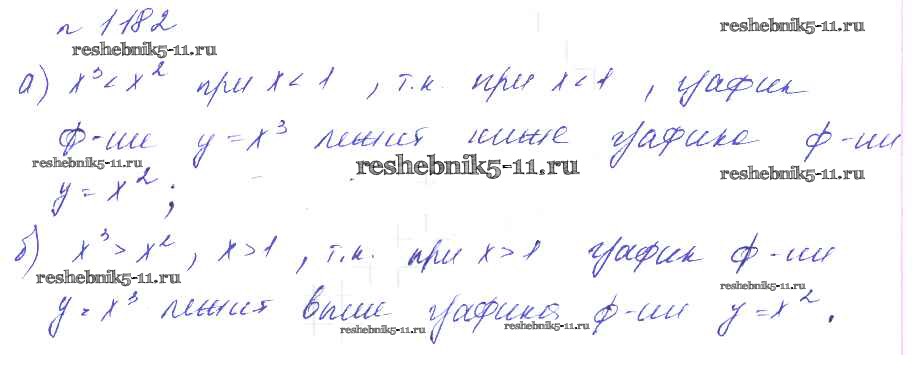 n 1182
reshebnik5-11.ru
reshebnik5-11.ru
а) x³ < x² при x < 1 , т.к. при x < 1 , график
ф-ии y = x³ лежит ниже графика ф-ии
reshebnik5-11.ru
reshebnik5-11.ru
reshebnik5-11.ru
y = x² ;
б) x³ > x² , x > 1 , т.к. при x > 1 график ф-ии
reshebnik5-11.ru
reshebnik5-11.ru
y = x³ лежит выше графика ф-ии y = x² .
reshebnik5-11.ru
reshebnik5-11.ru